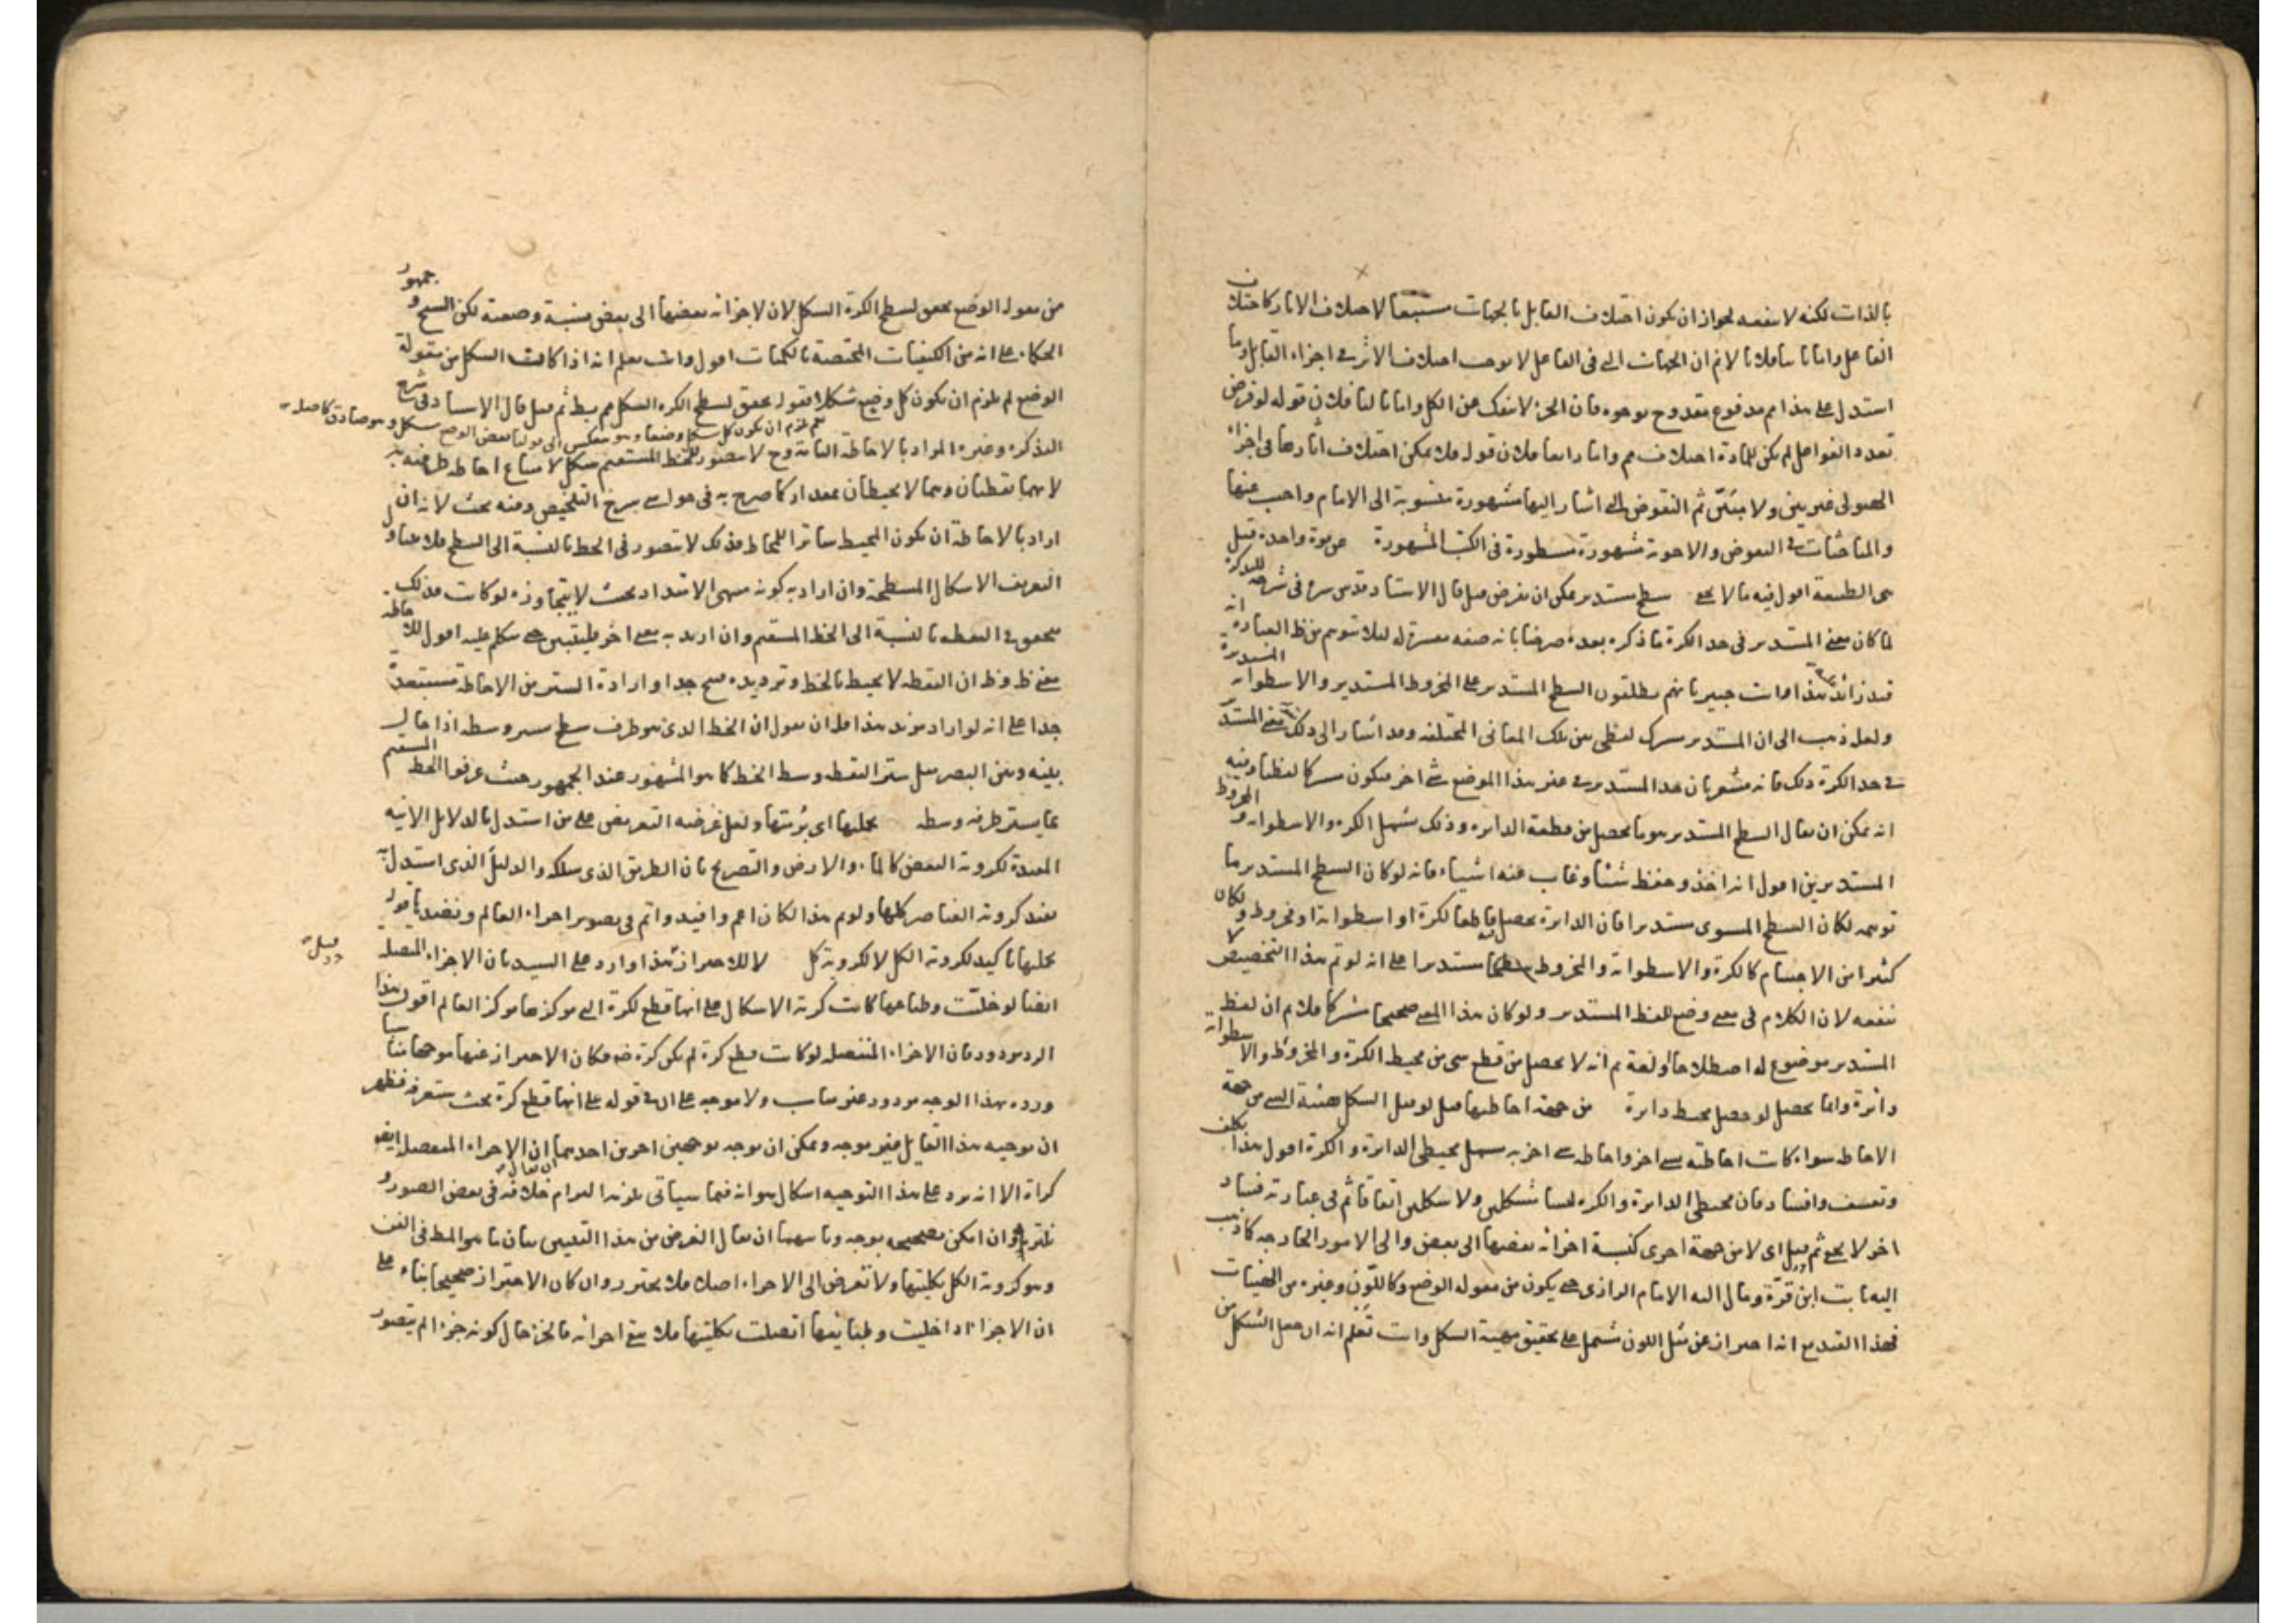 بالذات لكنه لا ينفعه لجواز ان يكون اختلاف القابل بالجهات مستتبعا لاختلاف الاثار كاختلاف
الفاعل واما ثانيا فلانا لا نم ان الجهات التى فى الفاعل لا يوجب اختلاف الاثر فى اجزاء القابل وما
استدل على هذا مم مدفوع مقدوح بوجوه فان الجزء لا ينفك عن الكل واما ثالثا فلان قوله لو فرض
تعدد الفواعل لم يكن للمادة اختلاف مم واما رابعا فلان قوله فلا يمكن اختلاف اثارها فى اجزاء
الهيولى غير بين ولا مبين ثم النقوض التى اشار اليها مشهورة منسوبة الى الامام واجيب عنها
والمناقشات فى النقوض والاجوبة مشهورة مسطورة فى الكتب المشهورة عن قوة واحدة قيل
هى الطبيعة اقول فيه ما لا يخفى سطح مستدير يمكن ان يفرض قيل قال الاستاد قدس سره فى شرحه للتذكرة
لما كان معنى المستدير فى حد الكرة ما ذكره بعده صرفنا بانه صفة مفسرة له لئلا يتوهم من ظ العبارة انه
قيد زائد هذا وانت خبير بانهم يطلقون السطح المستدير على المخروط المستدير والاسطوانة المستديرة
ولعله ذهب الى ان المستدير مشترك لفظى بين تلك المعانى المختلفة وقد اشار الى ذلك معنى المستدير
فى حد الكرة ذلك فانه مشعر بان حد المستدير فى غير هذا الموضع شئ اخر فيكون مشتركا لفظيا وفيه
انه يمكن ان يقال السطح المستدير هو ما يحصل من قطعه الدايرة وذلك يشمل الكرة والاسطوانة والمخروط
المستديرين اقول انه اخذ وحفظ شيئا وغاب عنه اشياء فانه لو كان السطح المستدير ما
توهمه لكان السطح المستوى مستديرا فان الدايرة يحصل بقطعه لكرة او اسطوانة او مخروط ولكان
كثير من الاجسام كالكرة والاسطوانة والمخروط مستديرا على انه لو تم هذا التخصيص لا
ينفعه لان الكلام فى معنى وضع للفظ المستدير ولو كان هذا المعنى صحيحا مشتركا فلا نم ان لفظ
المستدير موضوع له اصطلاحا او لغة ثم انه لا يحصل من قطع شئ من محيط الكرة والمخروط والاسطوانة
دائرة وانما يحصل لو حصل محيط دايرة من جهة احاطتها قيل لو قيل الشكل هيئة الشئ من جهة
الاحاطة سواء كانت احاطته بشئ اخر او احاطة شئ اخر به يشمل محيطى الدايرة والكرة اقول هذا تكلف
وتعسف وافساد فان محيطى الدايرة والكرة ليسا شكلين ولا مشكلين اتفاقا ثم فى عبارته فساد
اخر لا يخفى ثم قيل اى لا من جهة اخرى كنسبة اجزائه بعضها الى بعض والى الامور الخارجة كما ذهب
اليه ثابت ابن قرة ومال اليه الامام الرازى حتى يكون من مقولة الوضع وكاللون وغيره من الهيئات
فهذا القيد مع انه احتراز عن مثل اللون يشمل على تحقيق مهية الشكل وانت تعلم انه ان جعل الشكل من
من مقولة الوضع يحقق لسطح الكرة الشكل لان لاجزائه بعضها الى بعض نسبة وضعية لكن الشيخ وجمهور
الحكماء على انه من الكيفيات المختصة بالكميات اقول وانت تعلم انه اذا كانت الشكل من مقولة
الوضع لم يلزم ان يكون كل وضع شكلا فقوله يحقق لسطح الكرة الشكل مم ثم قيل قال الاستاد فى شرح
نعم يلزم ان يكون كل شكل وضعا وهو ينعكس الى قولنا بعض الوضع شكل وهو صادق
التذكرة وغيره المراد بالاحاطة التامة وح لا يتصور للخط المستقيم شكل لامتناع احاطة طرفيه به
لانهما نقطتان وهما لا يحيطان بمقدار كما صرح به فى حواشى شرح التلخيص وفيه بحث لانه ان
اراد بالاحاطة ان يكون المحيط ساترا للمحاط فذلك لا يتصور فى الخط بالنسبة الى السطح فلا يتناول
التعريف الاشكال المسطحة وان اراد به كونه منتهى الامتداد بحيث لا يتجاوزه لو كانت فذلك
يتحقق فى النقطة بالنسبة الى الخط المستقيم وان اريد به معنى اخر فليبين حتى يتكلم عليه اقول للاحاطة
معنى ظ وظ ان النقطة لا يحيط بالخط وترديده قبيح جدا وارادة الستر من الاحاطة مستبعدة
جدا على انه لو اراد مريد هذا فله ان يقول ان الخط الذى هو طرف سطح يستر وسطه اذا حال
بينه وبين البصر مثل ستر النقطة وسط الخط كما هو المشهور عند الجمهور حيث عرفوا الخط المستقيم
بما يستر طرفه وسطه بكليتها اى برمتها ولعل غرضه التعريض على من استدل بالدلائل الانية
المفيدة لكروية البعض كالماء والارض والتصريح بان الطريق الذى سلكه والدليل الذى استدل به
يفيد كروية العناصر كلها ولو تم هذا لكان اعم وافيد واتم فى تصوير اجزاء العالم
بكليتها تاكيد لكروية الكل لا لكروية كل لا للاحتراز هذا وارد على السيد بان الاجزاء المنفصلة قيل
ايضا لو خليت وطباعها كانت كرية الاشكال على انها قطع لكرة التى مركزها مركز العالم اقول هذا
الرد مردود فان الاجزاء المنفصلة لو كانت قطع كرة لم يكن كرة فكان الاحتراز عنها موجها مناسبا
ورده بهذا الوجه مردود غير مناسب ولا موجه على ان قوله على انها قطع كرة بحث ستعرفه فظهر
ان توجيه هذا القايل غير موجه ويمكن ان يوجه بوجهين اخرين احدهما ان يقال ان الاجزاء المنفصلة ايضا
كراة الا انه يرد على هذا التوجيه اشكال هو انه فيما سياتى خلافه فى بعض الصور
وان امكن تصحيحه بوجه وثانيهما ان يقال الغرض من هذا التعيين بيان ما هو المط فى الفن
وهو كروية الكل بكليتها ولا تعرض الى الاجزاء اصلا فلا يحترز وان كان الاحتراز صحيحا بناء على
ان الاجزاء اذا خليت وطبايعها اتصلت بكليتها فلا يبقى اجزائه فالجزء حال كونه جزءا لم يتصور